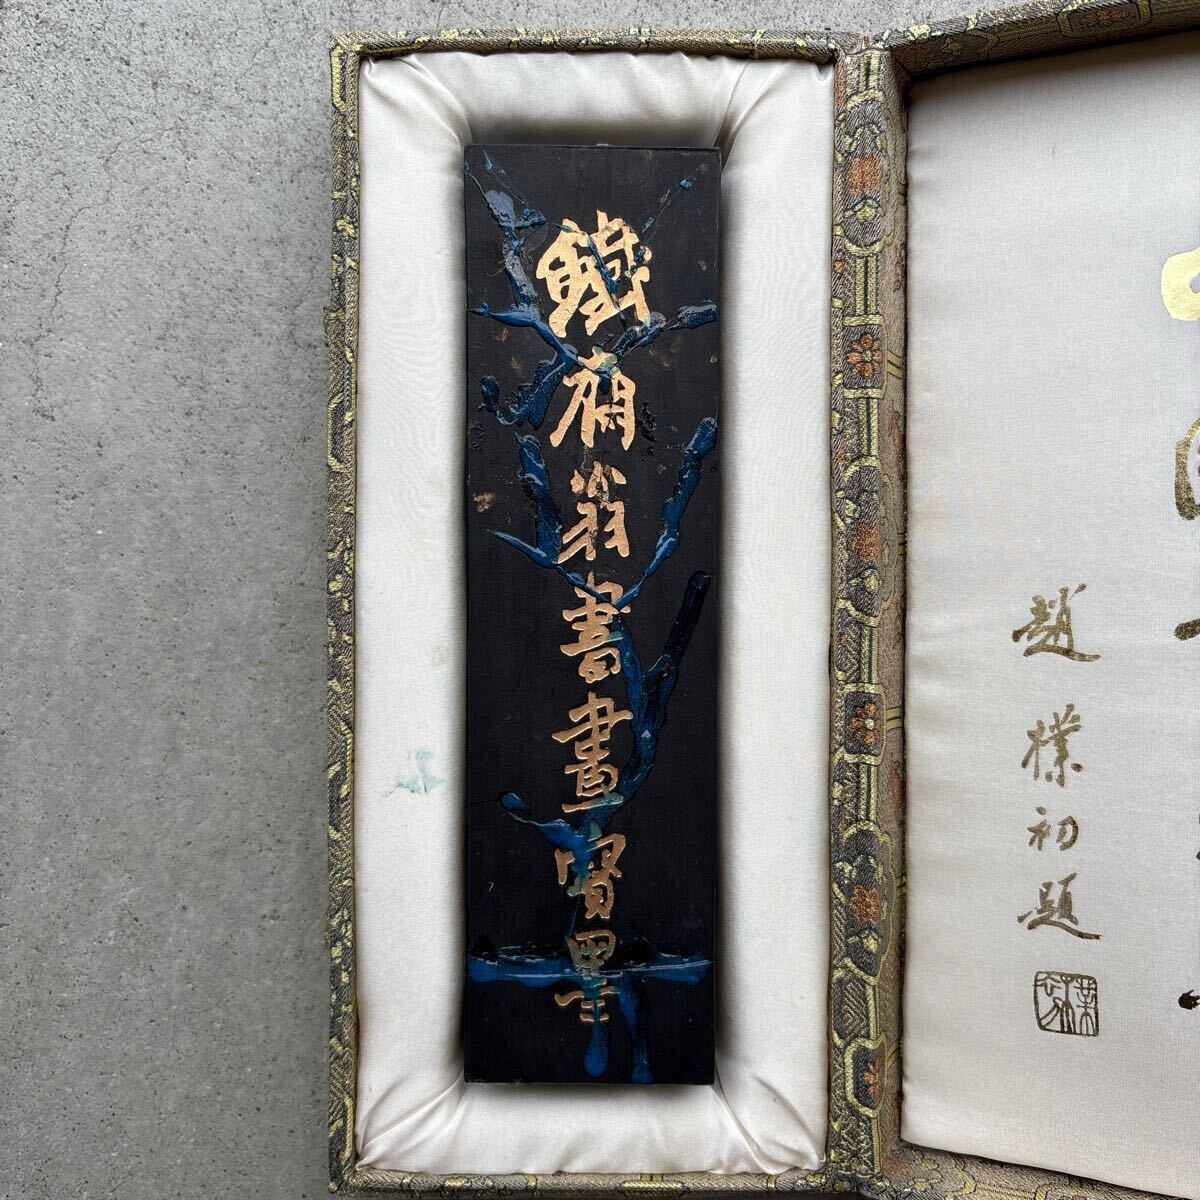 鐵齋翁書畫寶墨
趙樸初題